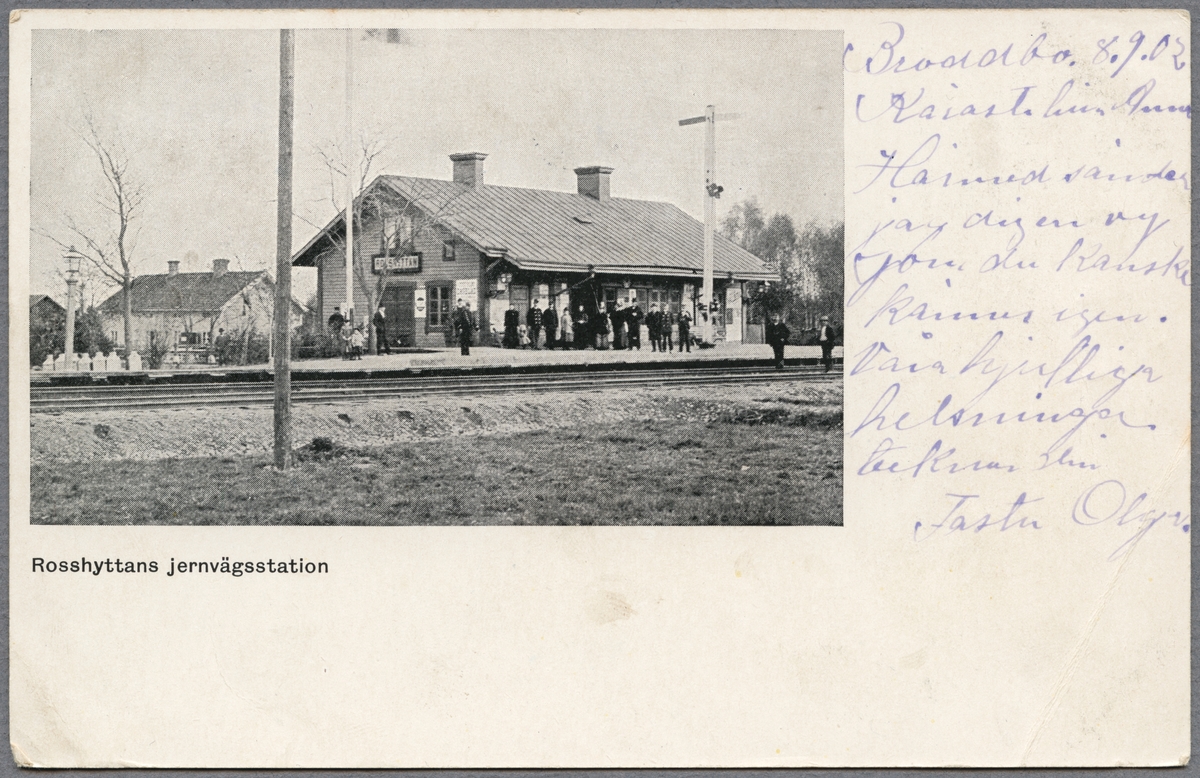 ROSSHYTTAN
Rosshyttans jernvägsstation
Broddbo. 8.9.02
Käraste lina
Härmed sänder
jag dig en vy
som du kanske
känner igen.
Våra hjertliga
helsningar
tecknar din
Faster Olga.